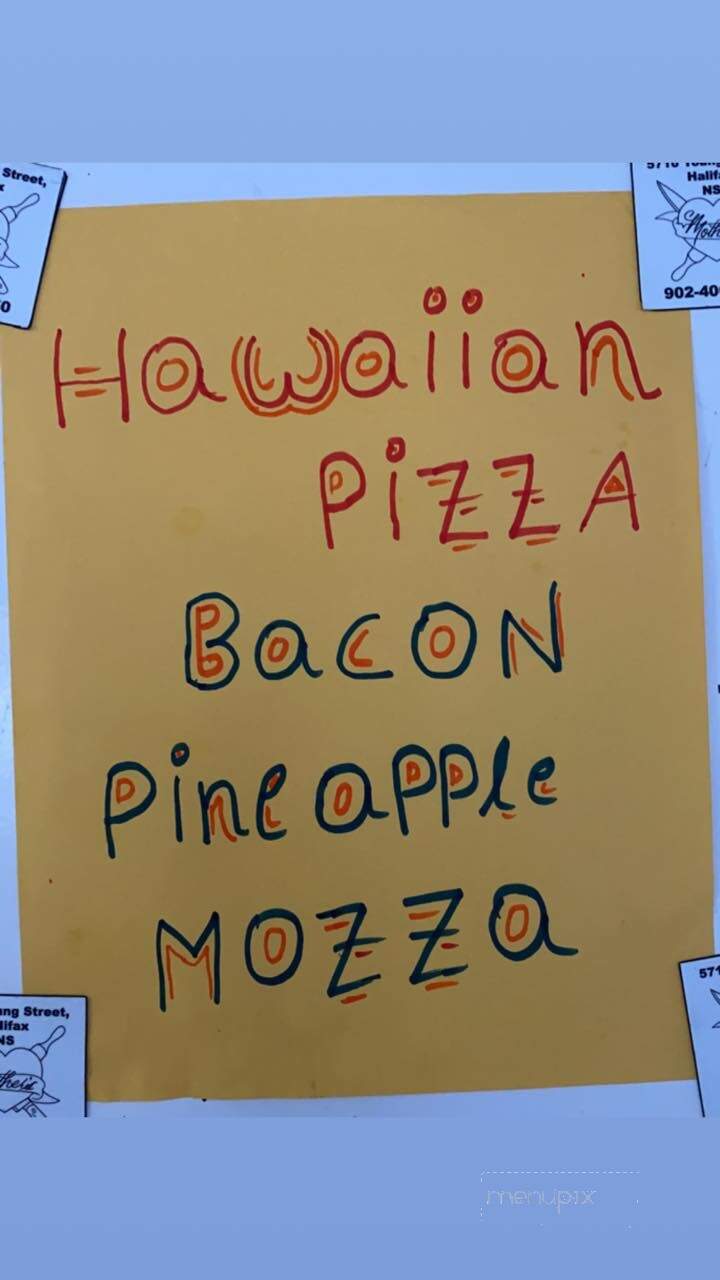 Street,
5710 Young
Halifa
NS
902-40
Hawaiian
PiZZA
BacoN
Pineapple
MOZZa
ung Street,
lifax
NS
571
menupix